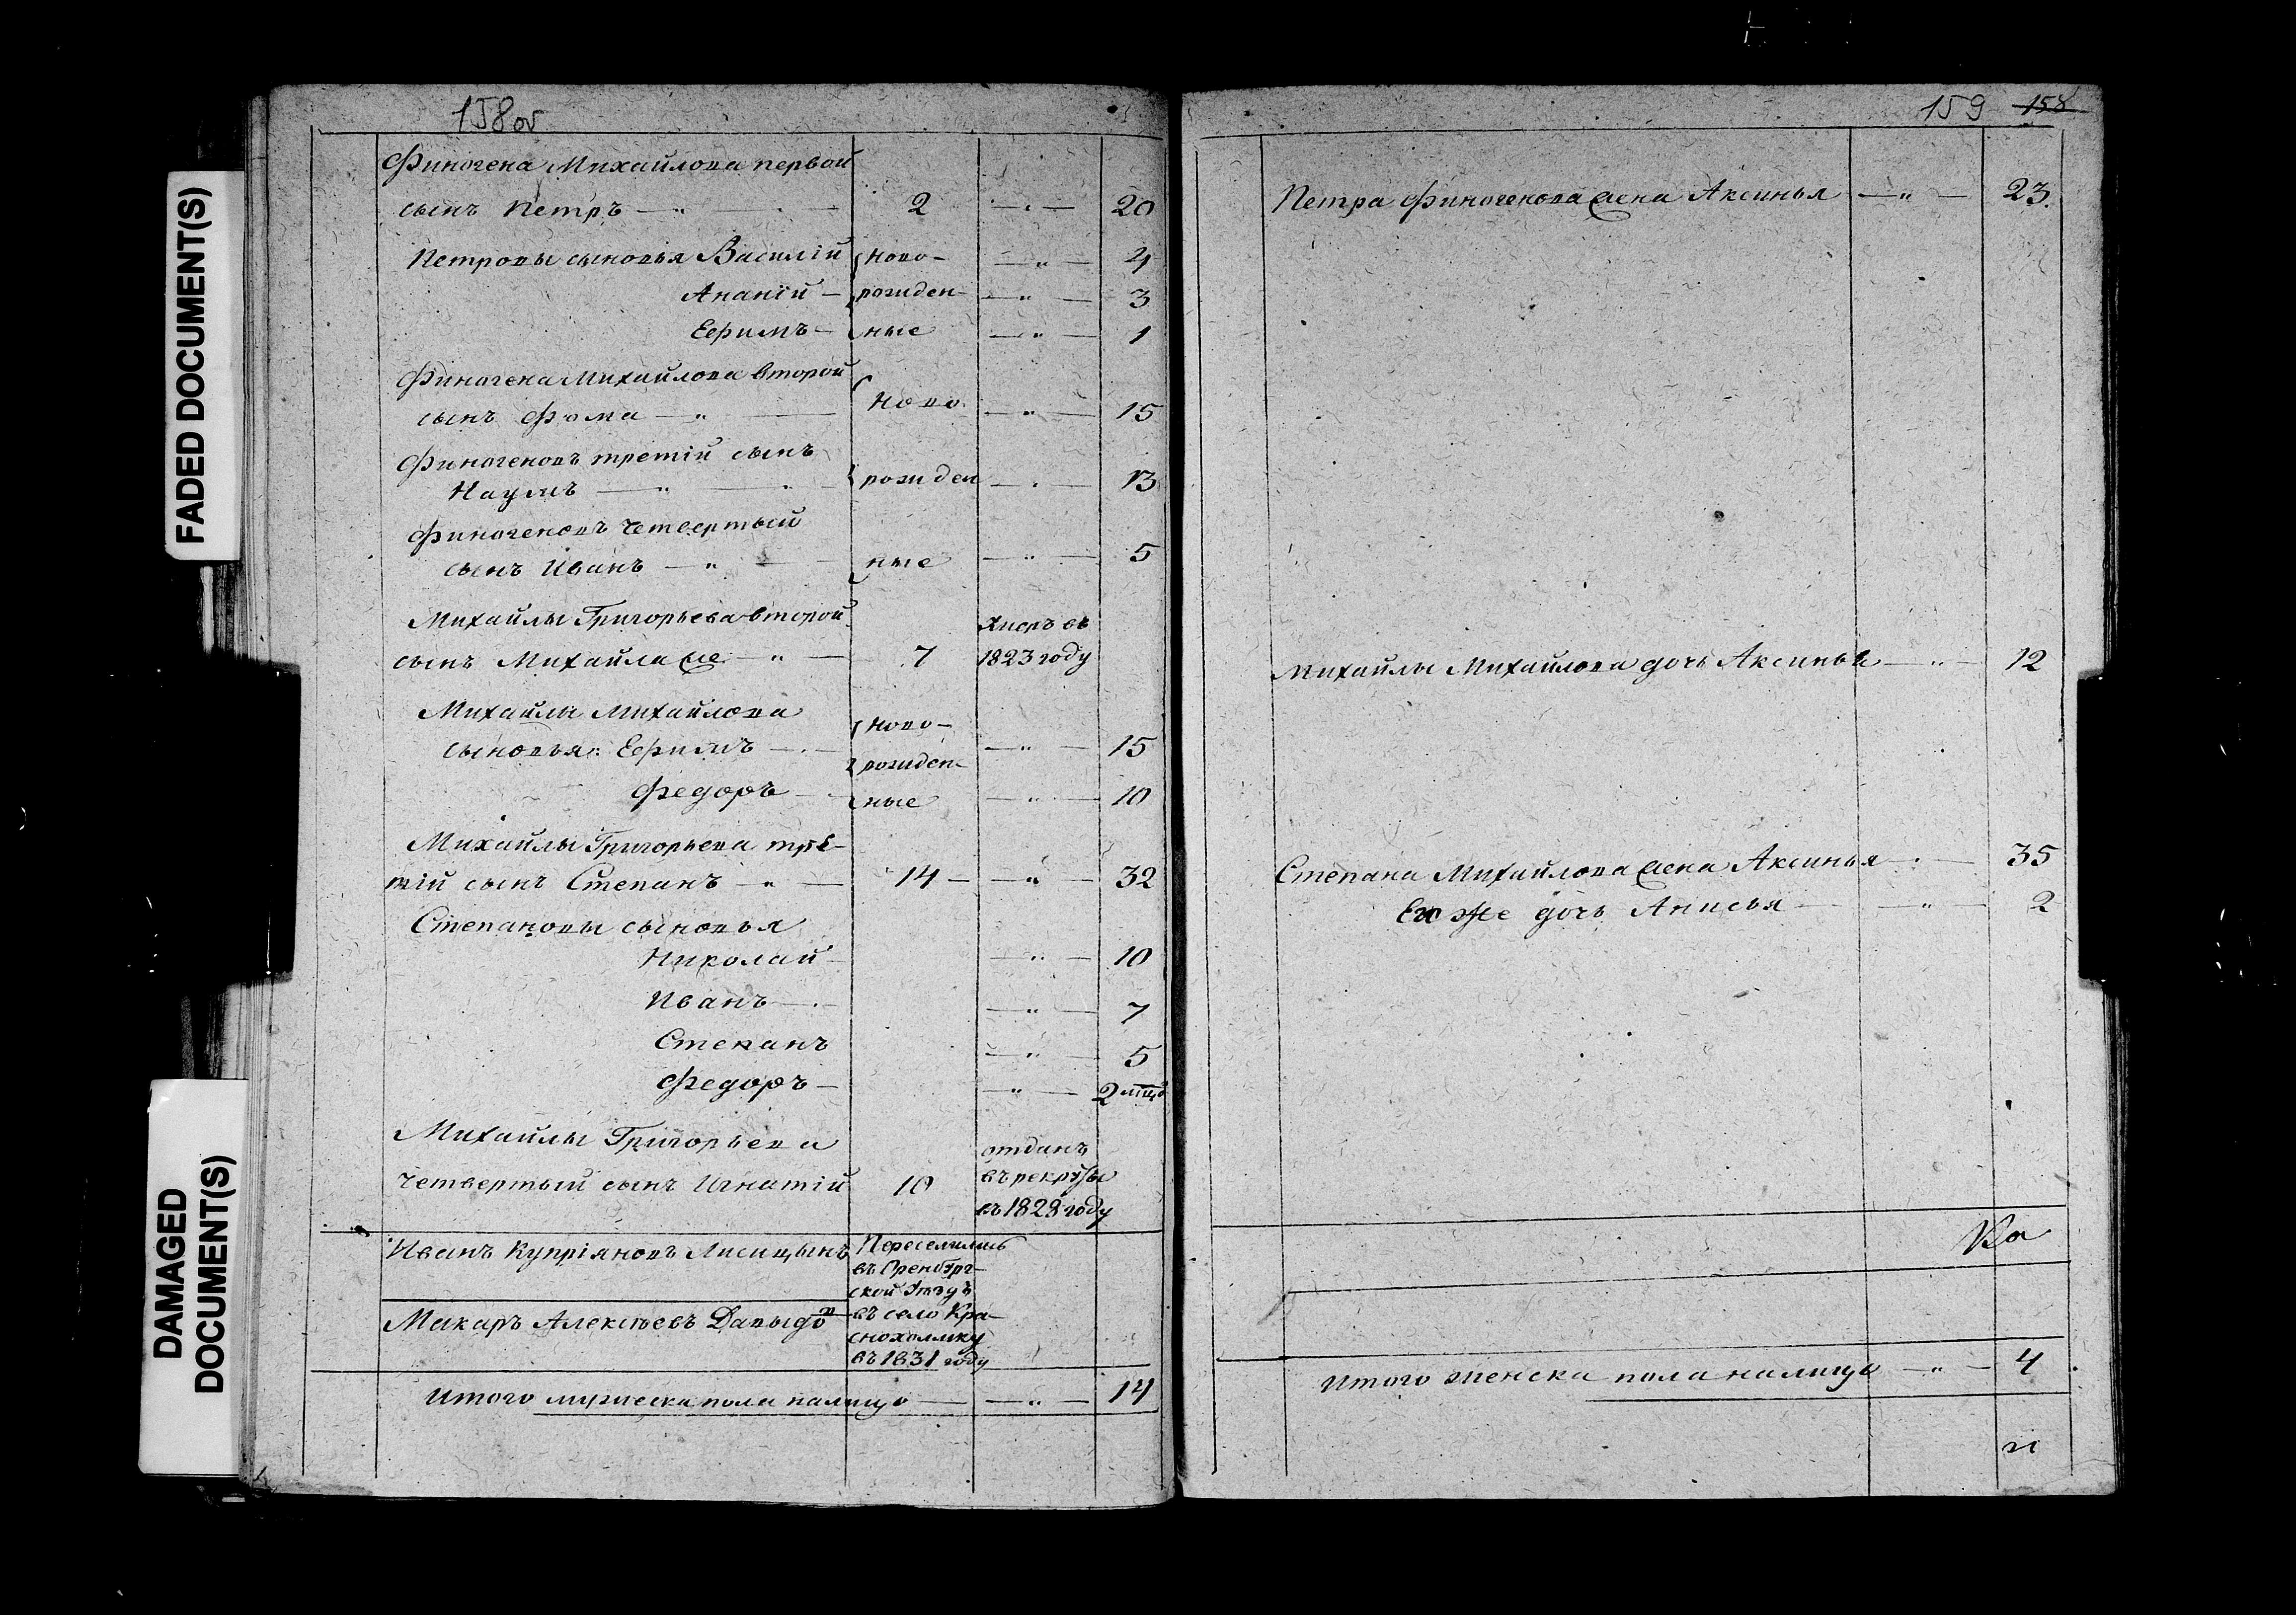 FADED DOCUMENT(S)
DAMAGED
DOCUMENT(S)
158об
Финогена Михайлова первой
сынъ Петръ — " — 2 — " — 20
Петровы сыновья Василій ново- — " — 4
Ананій — рожден- — " — 3
Ефимъ — ные — " — 1
Финогена Михайлова второй
сынъ Фома — " — Ново — " — 15
Финогеновъ третій сынъ
Наумъ — " — рожден — " — 13
Финогеновъ четвертый
сынъ Иванъ — " — ные — " — 5
Михайлы Григорьева второй умеръ въ
сынъ Михайла же — " — 7 1823 году
Михайлы Михайлова ново-
сыновья: Ефимъ — рожден- — " — 15
Федоръ — ные — " — 10
Михайлы Григорьева тре-
тій сынъ Степанъ — " — 14 — " — 32
Степановы сыновья
Николай — " — 10
Иванъ — " — 7
Степанъ — " — 5
Федоръ — " — 2 мѣц
Михайлы Григорьева отданъ
четвертый сынъ Игнатій 10 въ рекруты
въ 1828 году
Иванъ Купріяновъ Лисицынъ Переселились
въ Оренбург-
ской Уездъ
Макаръ Алексѣевъ Давыдо въ въ село Кра-
снохолмку
въ 1831 году
Итого мужеска пола налицо — " — 14
159 158
Петра Финогенова жена Аксинья — " — 23.
Михайлы Михайлова дочь Аксинья — " — 12
Степана Михайлова жена Аксинья — " — 35
Его же дочь Анисья — " — 2
Итого женска пола налицо — " — 4